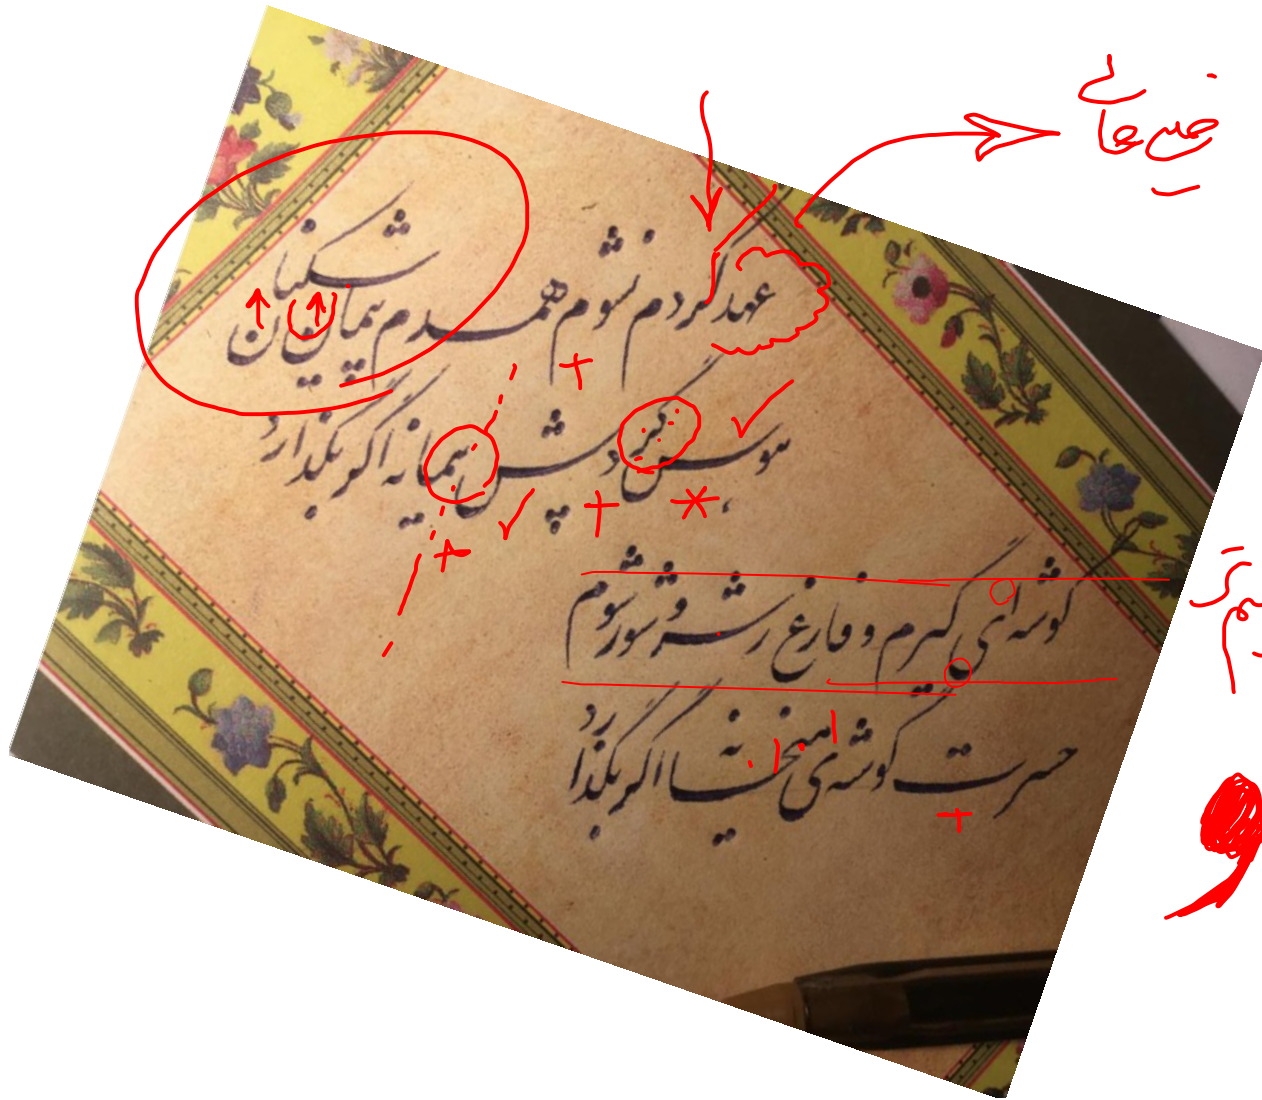 عهد کردم نشوم همدم پیمان شکنان
هوس گردش پیمانه اگر بگذارد
گوشه ای گیرم و فارغ ز شر و شور شوم
حسرت گوشه ی میخانه اگر بگذارد